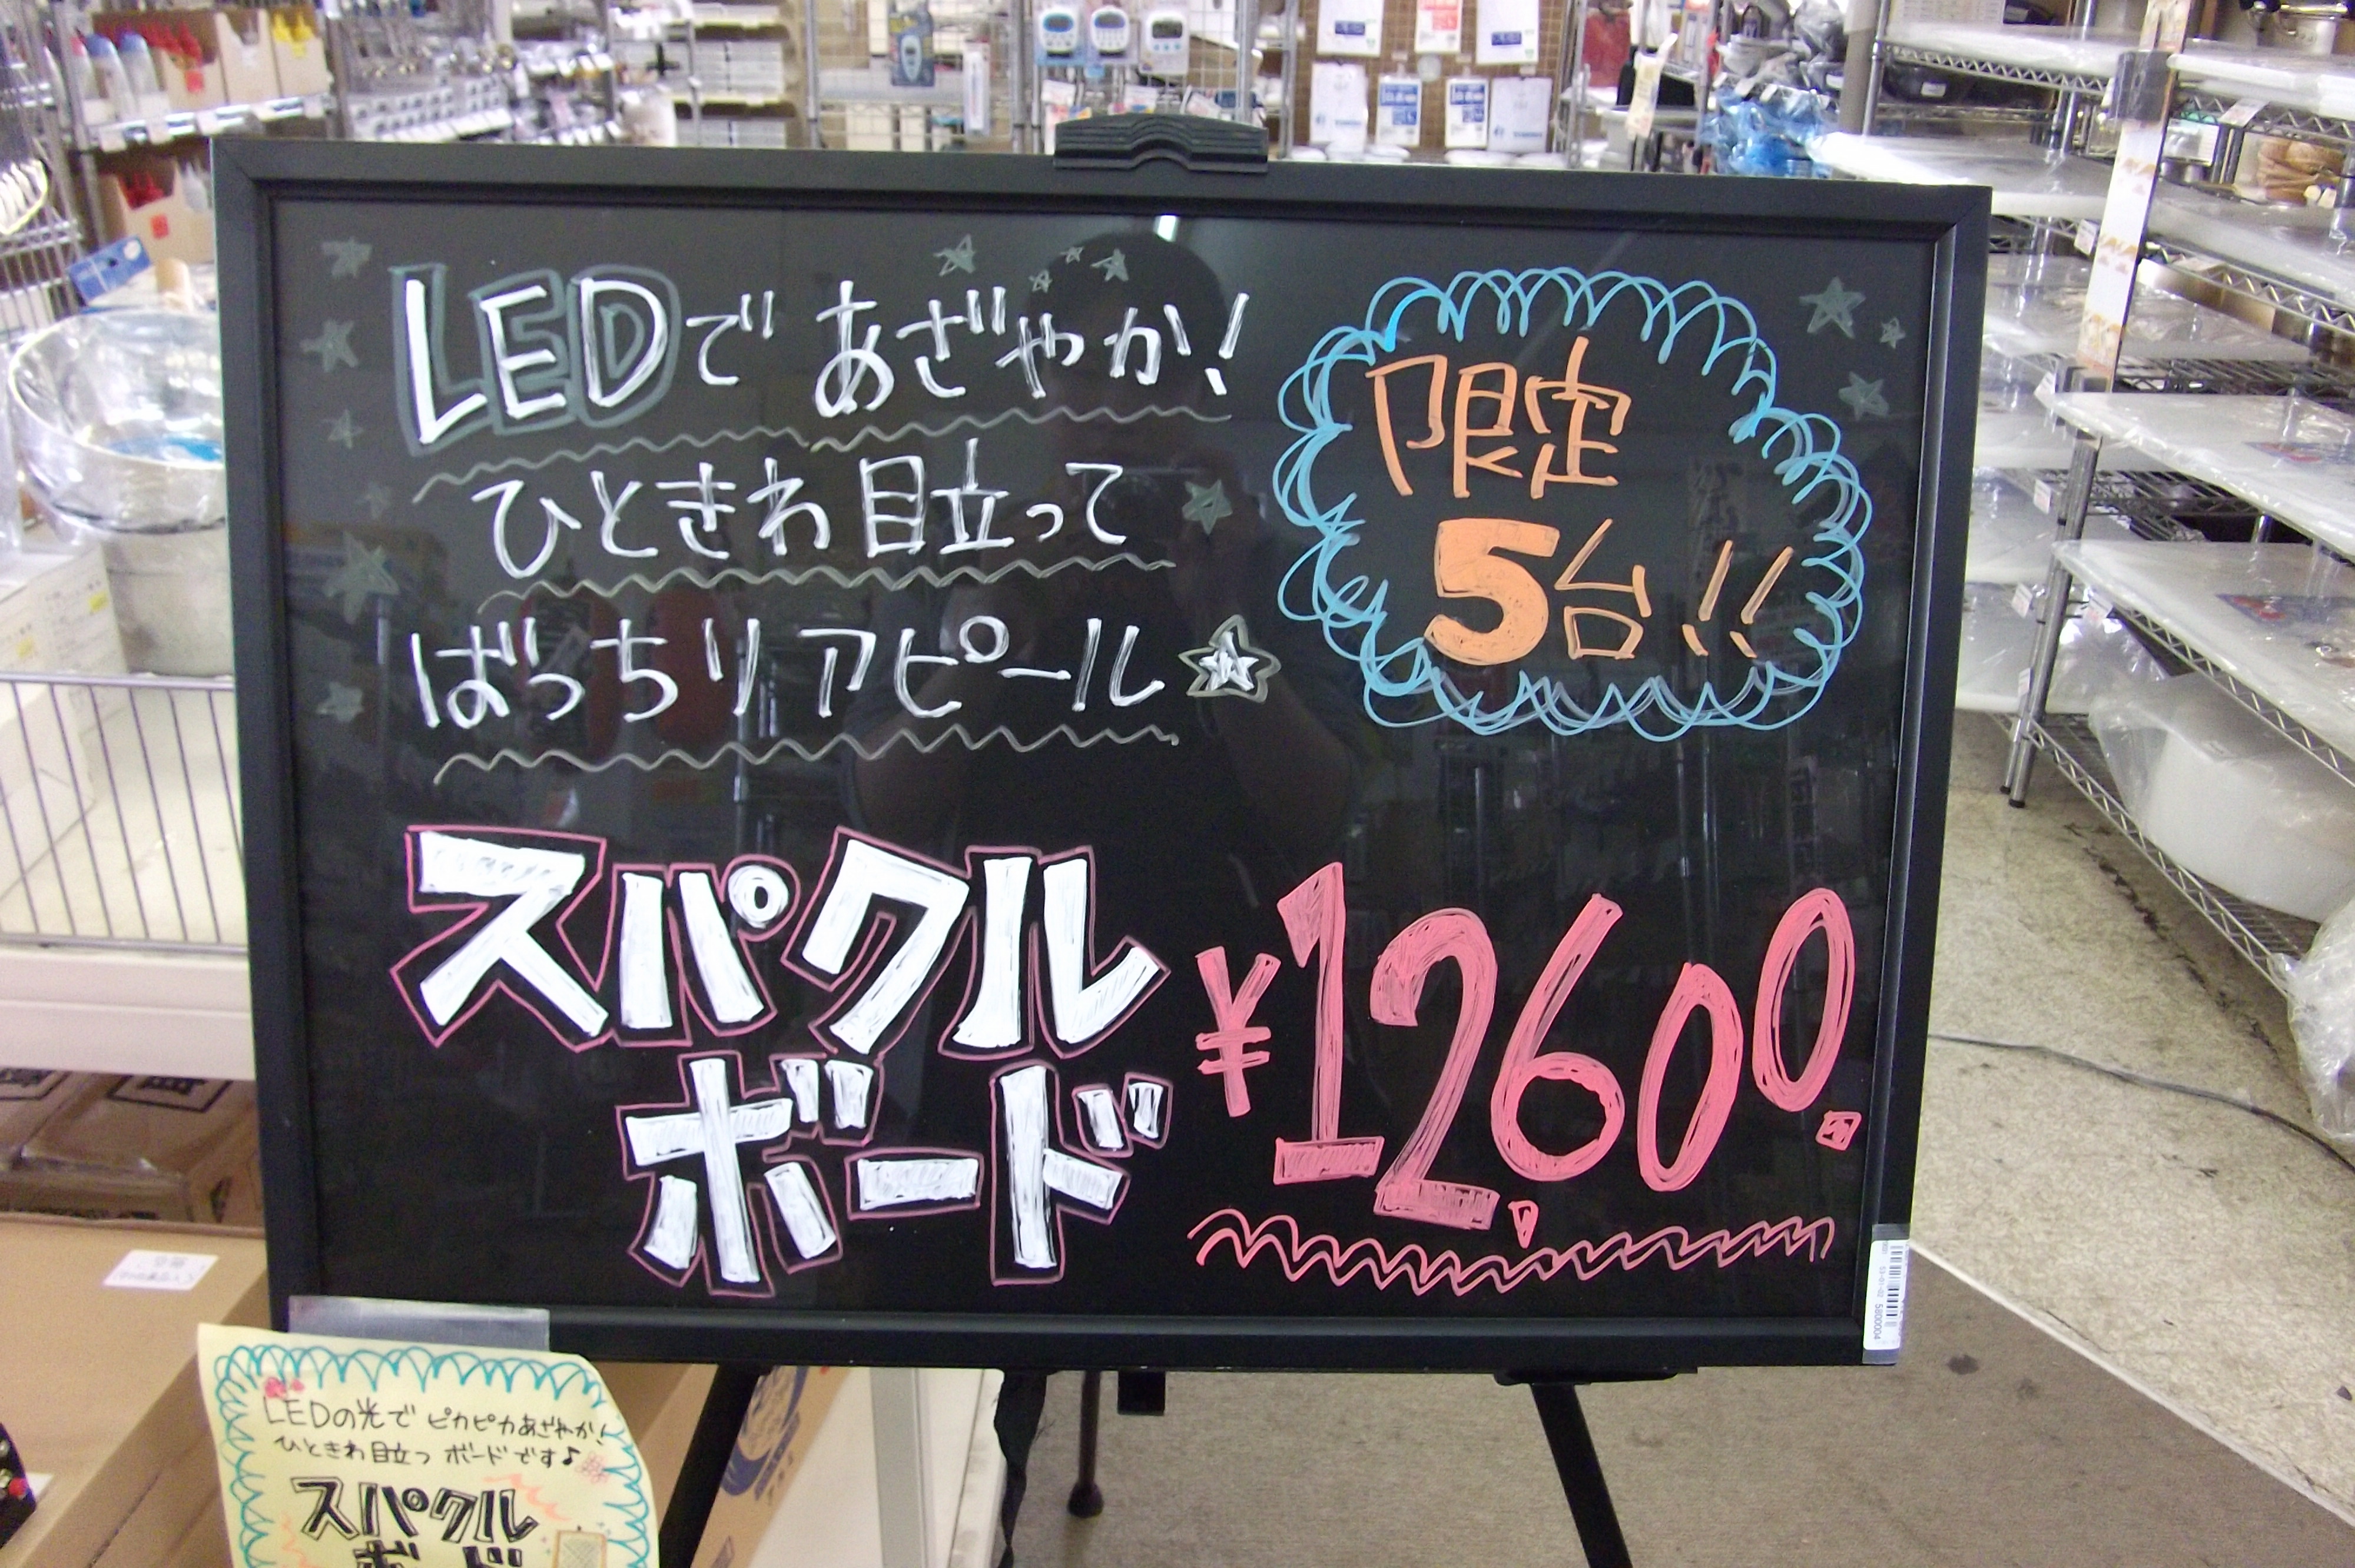 LEDであざやか!
ひときわ目立って
ばっちりアピール
限定
5台!!
スパクル
ボード
¥12,600.
LEDの光でピカピカあざやか!
ひときわ目立つボードです♪
スパクル
ボード